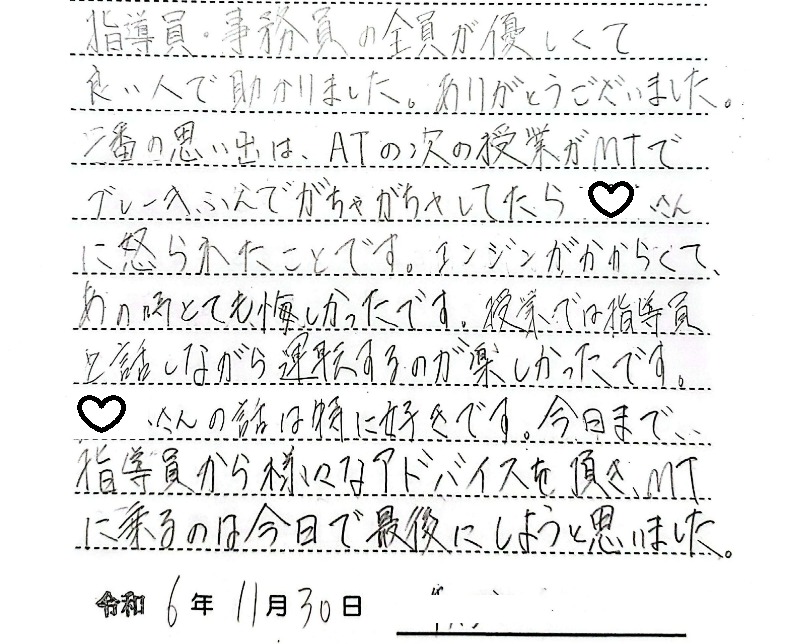 指導員・事務員の全員が優しくて
良い人で助かりました。ありがとうございました。
一番の思い出は、ATの次の授業がMTで
ブレーキふんでがちゃがちゃしてたら さん
に怒られたことです。エンジンがかからくて、
あの時とても悔しかったです。授業では指導員
と話しながら運転するのが楽しかったです。
さんの話は特に好きです。今日まで、
指導員から様々なアドバイスを頂き、MT
に乗るのは今日で最後にしようと思いました。
令和 6年 11月30日